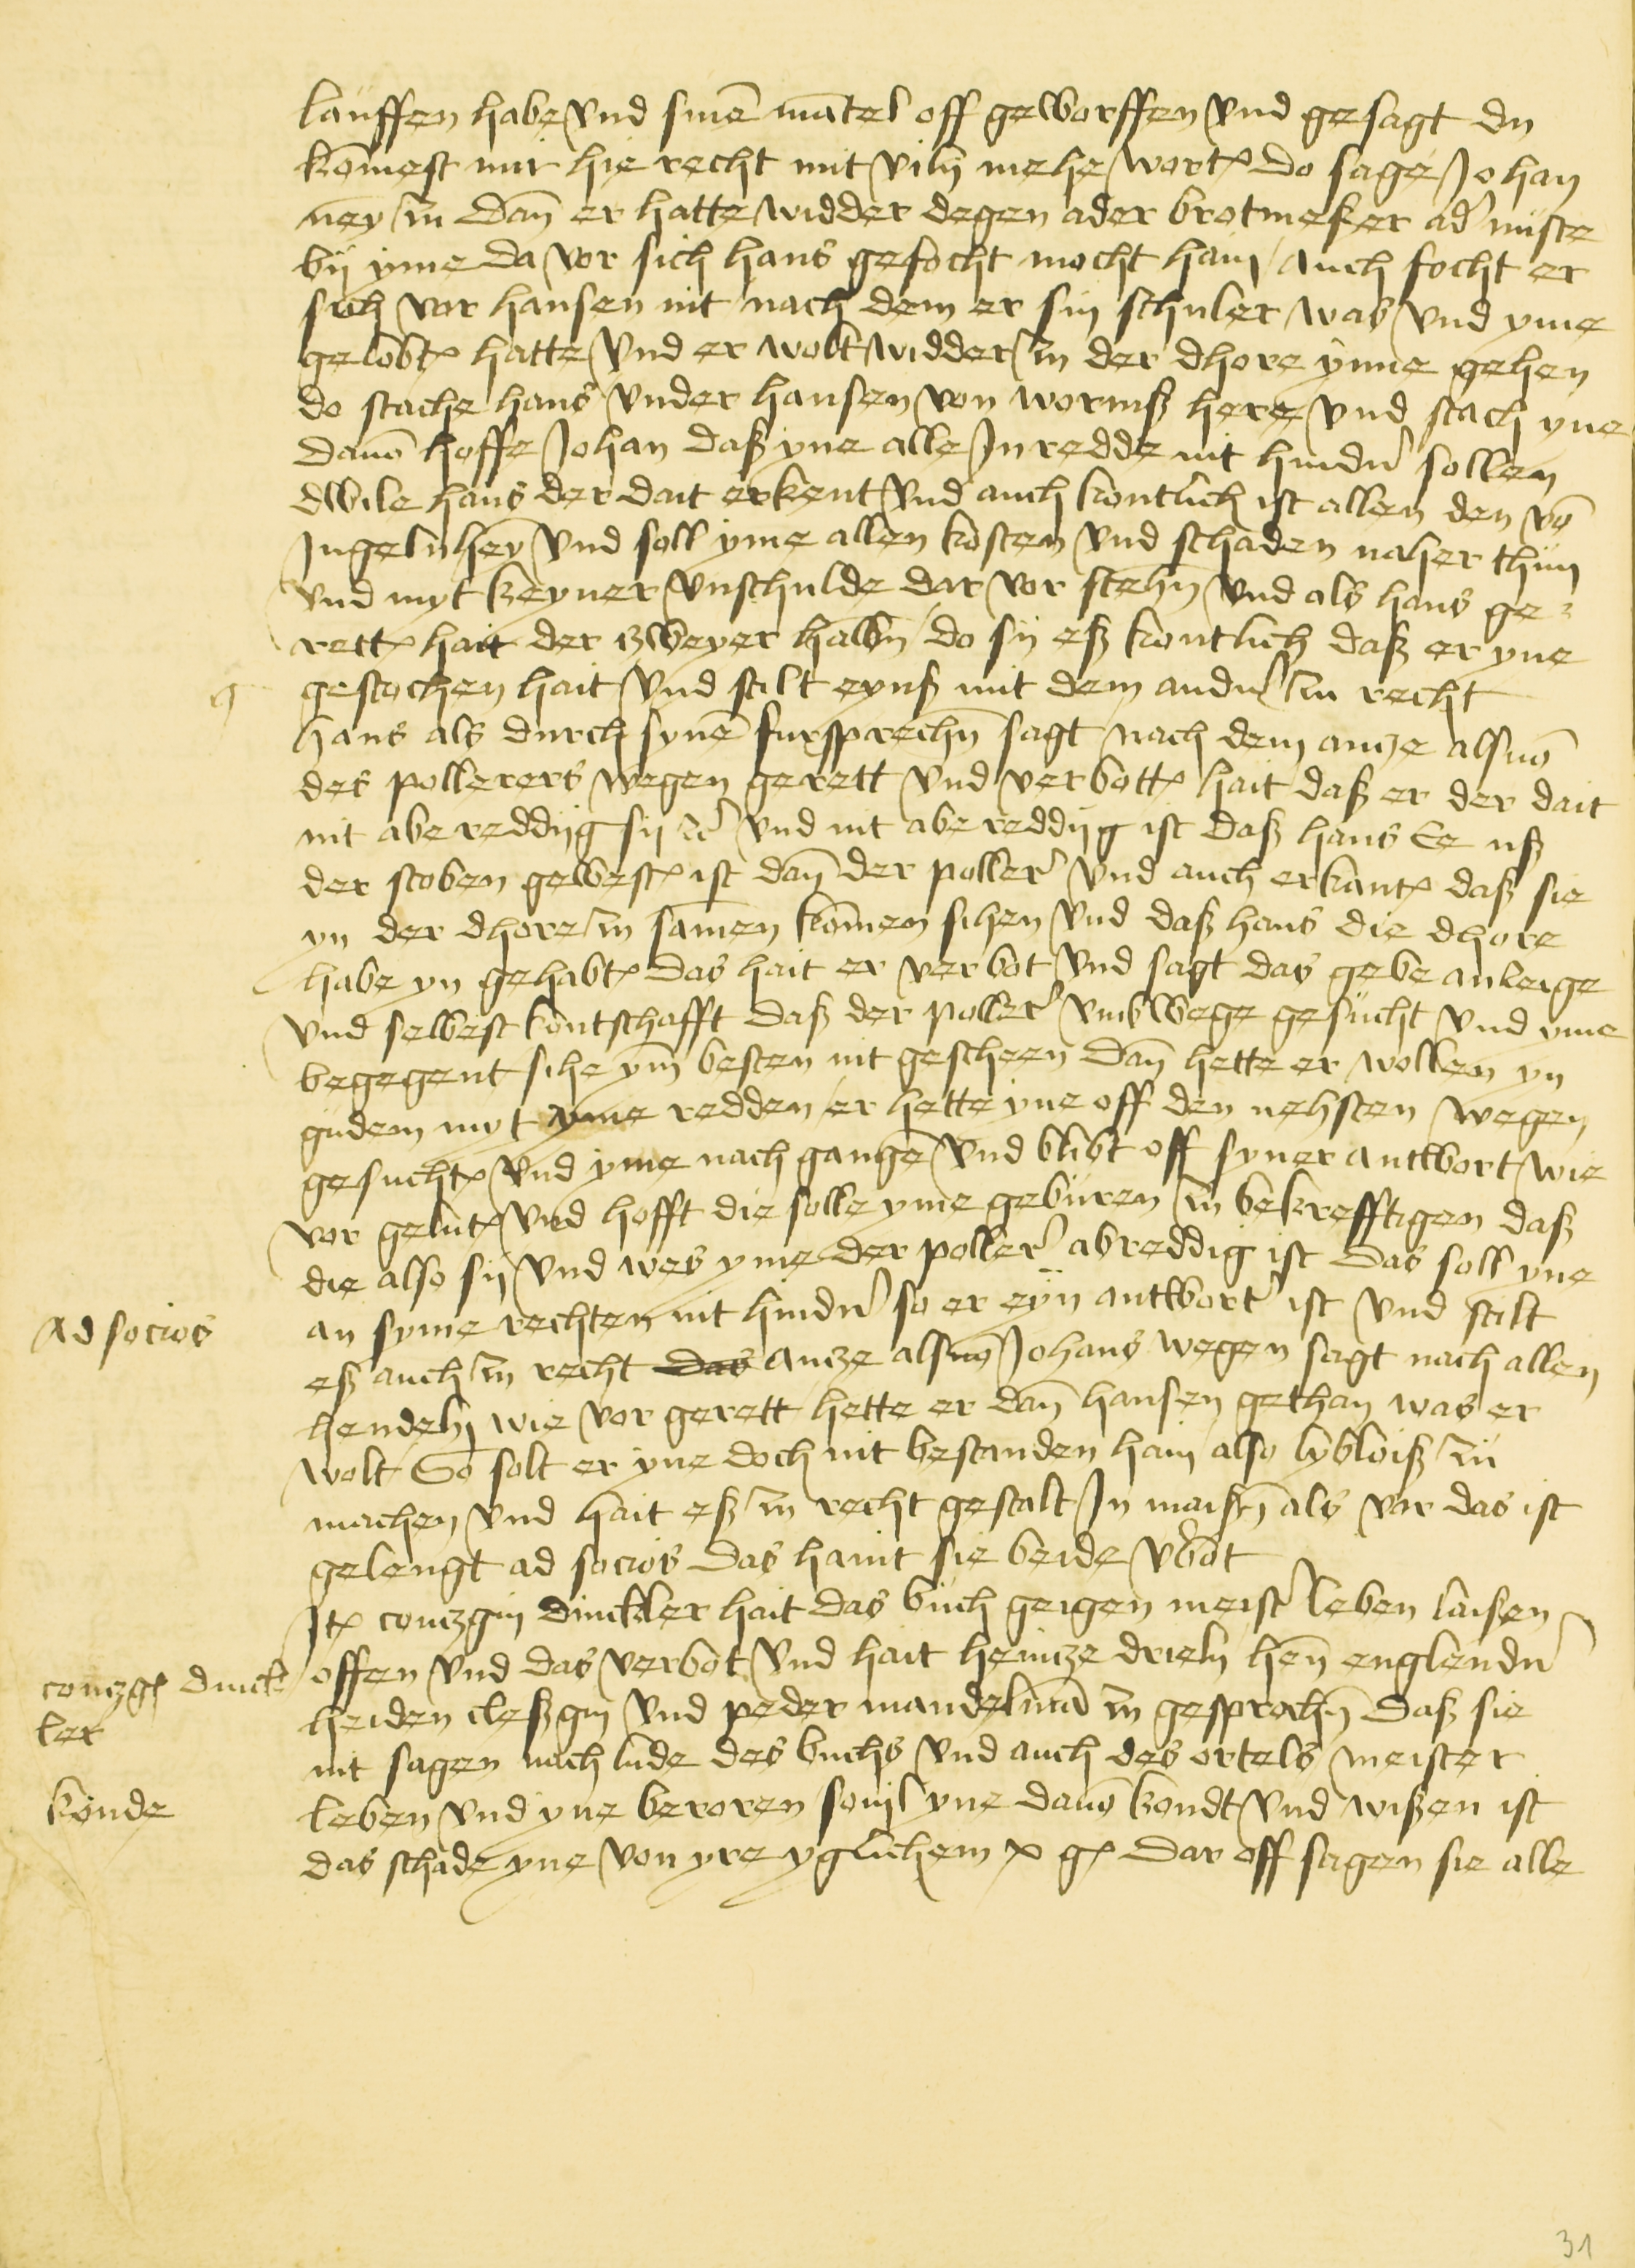 lauffen habe vnd sinē mātel off geworffen vnd gesagt du
kōmest mir hie recht mit viln mehe wort do sage Johan
neyn dan er hatte widder degen ader brotmeßer ad' nuste
bij yme da vor sich hans gefocht mocht hain auch focht er
sich vor hansen nit nach dem er sin schuler was vnd yme
gelobt hatte vnd er wolt widder zu der dhore ynne gehen
do stache hans vnder hansen von wormß here vnd stach yne
dauō hoffe Johan daß yne alle Inredde nit hindn' sollen
dwile hans der dait erkent vnd auch kontlich ist allen den vō
Ingelnheȳ vnd soll yme allen kosten vnd schaden naher thun
vnd myt keyner vnschulde dar vor stehn vnd als hans ge-
rett hait der zweyer halbn do sij eß kontlich daß er yne
gestochen hait vnd stilt eynß mit dem andn' zu recht
hans als durch synē fursprechn sagt nach dem ancze alsuō
des pollerers wegen gerett vnd verbott hait daß er der dait
nit abereddijg sij vnd nit abereddijg ist daß hans Ee uß
der stoben gewest ist dan der poller' vnd auch erkant daß sie
yn der dhore zu samen komen sihen vnd daß hans die dhore
habe yn gehabt das hait er verbot vnd sagt das gebe anleige
vnd selbest kontschafft daß der poller' vmbwege gesucht vnd yme
begegent sihe ym besten nit gescheen dan hette er wollen yn
gudem myt yme redden er hette yne off den nehsten wegen
gesucht vnd yme nach gangē vnd blibt off syner antwort wie
vor gelut vnd hofft die solle yme geburen zu bekrefftigen daß
die also sij vnd wes yme der poller' abreddig ist das soll yne
an syme rechten nit hindn' so er eyn antwort' ist vnd stilt
Ad socios
eß auch zu recht das ancze alsuō Johans wegen sagt nach allen
hendeln wie vor gerett hette er dan hansen gethan was er
wolt So solt er yne doch nit bestanden hain also lybloiß zu
machen vnd hait eß zu recht gestalt In maißn als vor das ist
gelengt ad socios das haint sie beide v'bot
It conczgin dinckler hait das buch geigen meist' leben laisen
offen vnd das verbot vnd hait heincze drieln hen englendn'
conczg dinck
ler
heiden cleßgin vnd peder mandelmā zu gesprochn daß sie
nit sagen nach lude des buchs vnd auch des ortels meister
konde
leben vnd yne beroren souil yne dauō kondt vnd wißen ist
das schade yne von yre yglichem x g dar off sagen sie alle
31